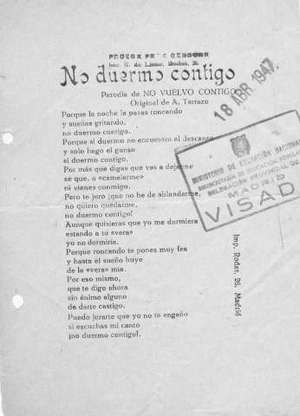 PRUEBA PARA CENSURA
Imp. G. de Lucas. Rodas, 26
No duermo contigo
Parodia de NO VUELVO CONTIGO
Original de A. Terrazo
Porque la noche la pasas roncando
y sueñas gritando,
no duermo contigo.
Porque al duermo no encuentro el descanso
y solo hago el ganso
si duermo contigo.
Por más que digas que vas a dejarme
sé que, a «camelarme»
ni vienes conmigo.
Pero te juro ¡que no he de ablandarme,
no quiero quedarme,
no duermo contigo!
Aunque quisieras que yo me durmiera
estando a tu «vera»
yo no dormiría.
Porque roncando te pones muy fea
y hasta el sueño huye
de la «vera» mía.
Por eso mismo,
que te digo ahora
sin ánimo alguno
de darte castigo.
Puedo jurarte que yo no te engaño
si escuchas mi canto
¡no duermo contigo!.
18 ABR 1947
MINISTERIO DE EDUCACION NACIONAL
SUBSECRETARIA DE EDUCACION POPULAR
DELEGACION PROVINCIAL DE
MADRID
VISAD
Imp. Rodas, 26, Madrid